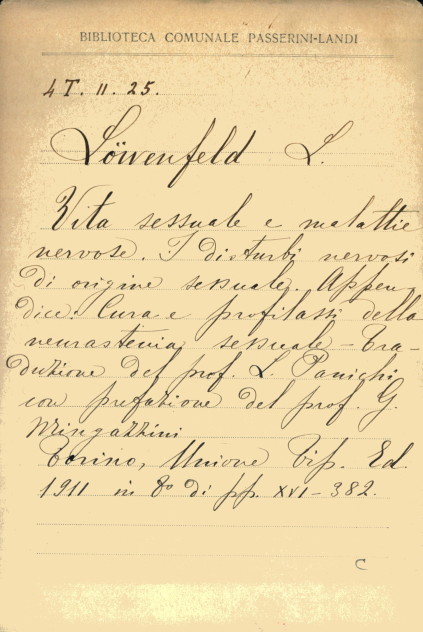 BIBLIOTECA COMUNALE PASSERINI-LANDI
4 T. II. 25.
Löwenfeld L.
Vita sessuale e malattie
nervose. I disturbi nervosi
di origine sessuale. Appen
dice: Cura e profilassi della
neurastenia sessuale - Tra-
duzione del prof. L. Panichi
con prefazione del prof. G.
Mingazzini
Torino, Unione Tip. Ed.
1911 in 8º di pp. XVI-382.
C